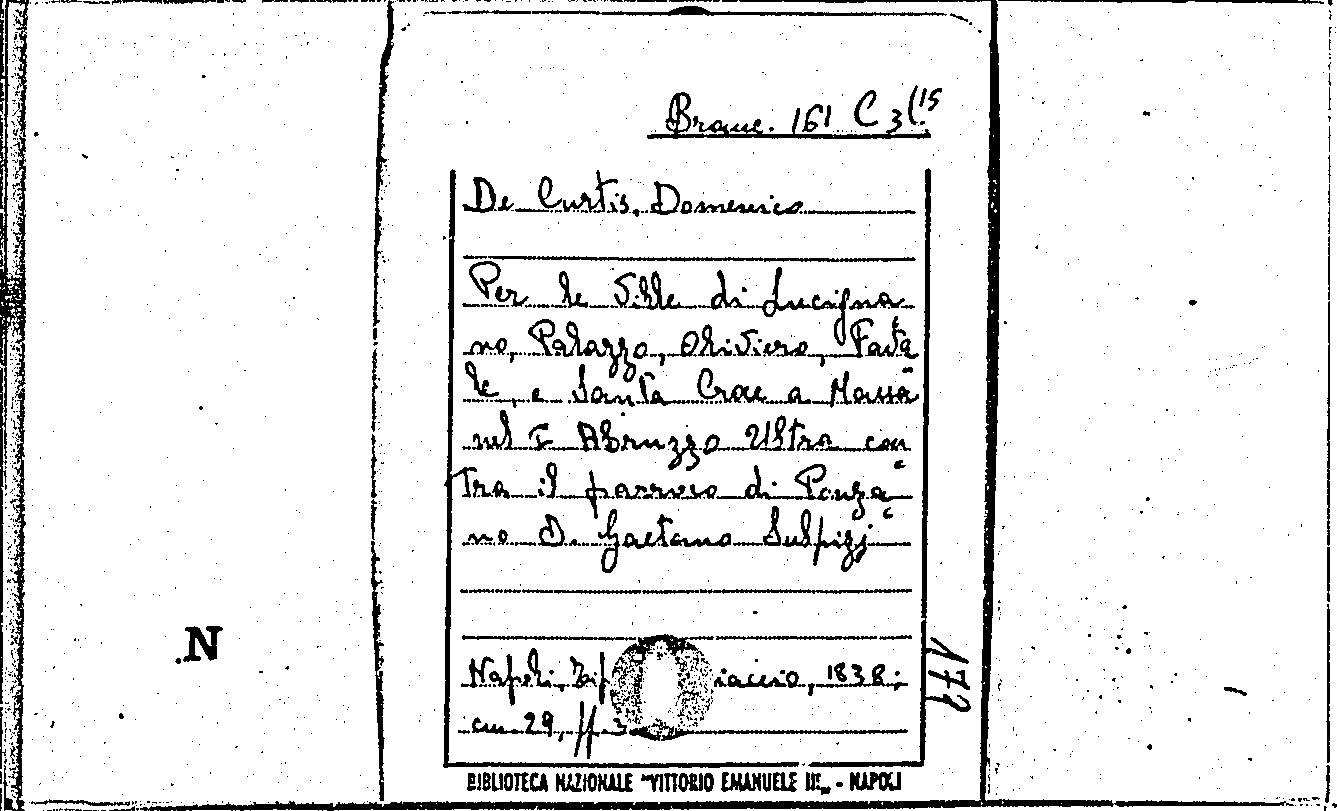 Branc. 161 C 3(15
De Curtis, Domenico
Per le Ville di Lucigna
no, Palazzo, Oliviero, Fasta
le, e Santa Croce a Massa
nel I Abruzzo Ultra con
tra il parroco di Ponza
no D. Gaetano Sulpizj
Napoli, Tip iaccio, 1838;
cm. 29, ff. 3
BIBLIOTECA NAZIONALE "VITTORIO EMANUELE III„ - NAPOLI
N